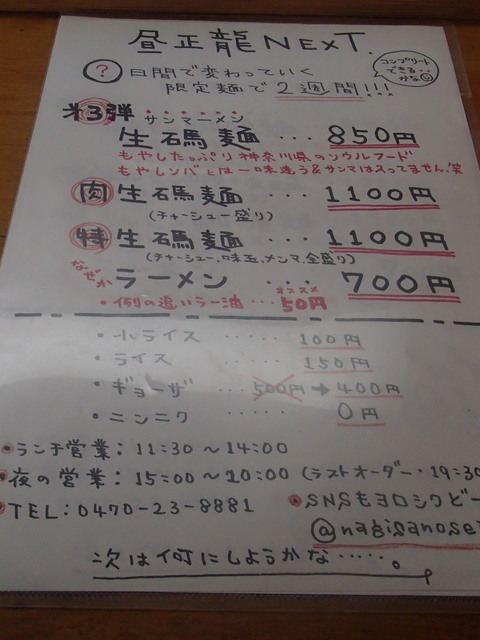 昼正龍NEXT.
? 日間で変わっていく
限定麺で2週間!!!
コンプリートできるかな
第3弾 サンマーメン
生碼麺 ... 850円
もやしたっぷり神奈川県のソウルフード
もやしソバとは一味違う&サンマは入ってません.笑
肉 生碼麺 ... 1100円
(チャーシュー盛り)
特 生碼麺 ... 1100円
(チャーシュー、味玉、メンマ、全盛り)
なぜか ラーメン ... 700円
・例の追いラー油 ... オススメ 50円
・小ライス ..... 100円
・ライス ..... 150円
・ギョーザ ... 500円→400円
・ニンニク ..... 0円
ランチ営業:11:30~14:00
夜の営業:15:00~20:00 (ラストオーダー・19:30
TEL:0470-23-8881
SNSもヨロシクビー
@nagisanose
次は何にしようかな.....。